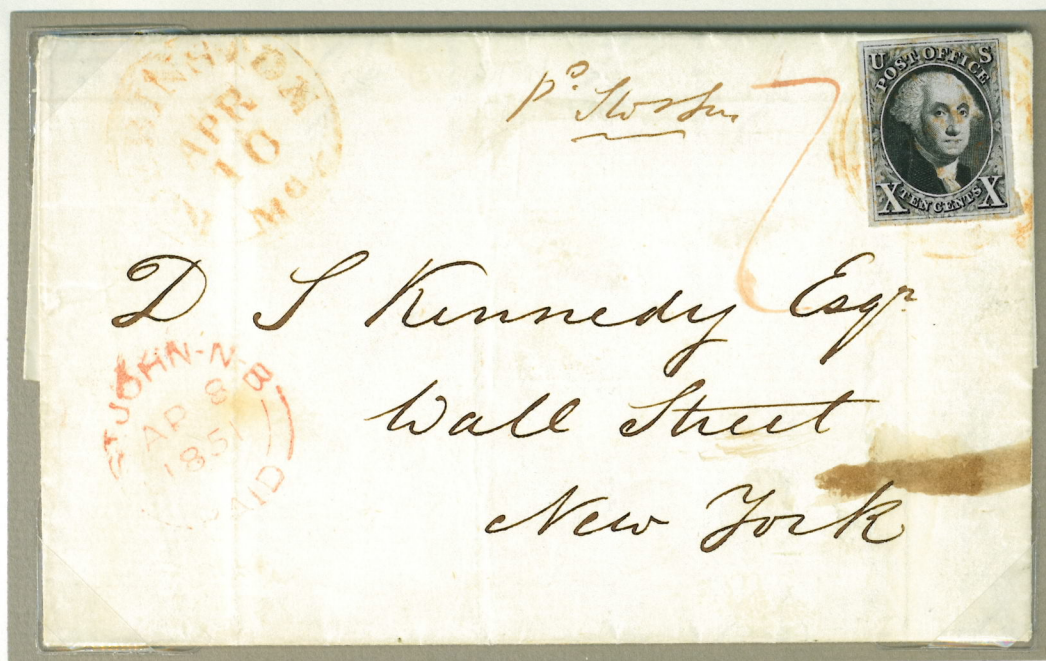 BINSTON
APR
10
Me
7
U S
POST OFFICE
X TEN CENTS X
D S Kennedy Esqr
Wall Street
New York
ST JOHN-N-B-
AP 8
1851
AID